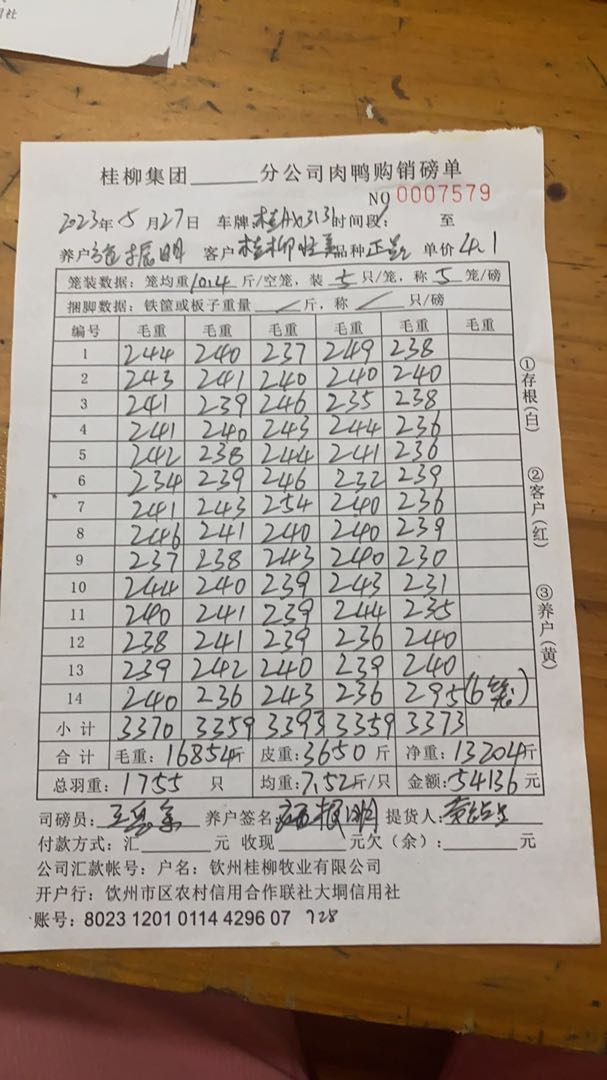 司社
桂柳集团______分公司肉鸭购销磅单
NO 0007579
2023年5月27日 车牌:桂AX3131时间段: 至
养户 振明 客户 桂柳 品种 正 单价 4.1
笼装数据:笼均重10.4斤/空笼,装 5 只/笼,称 5 笼/磅
捆脚数据:铁筐或板子重量 / 斤,称 / 只/磅
编号 毛重 毛重 毛重 毛重 毛重 毛重
1 244 240 237 249 238
2 243 241 240 240 240
3 241 239 246 235 238
4 241 240 243 244 236
5 242 238 244 241 236
6 234 239 246 232 239
7 241 243 254 240 236
8 246 241 240 240 239
9 237 238 243 240 230
10 244 240 239 243 231
11 240 241 239 244 235
12 238 241 239 236 240
13 239 242 240 239 240
14 240 236 243 236 295(6笼)
小计 3370 3359 3393 3359 3373
合计 毛重:16854斤 皮重:3650斤 净重:13204斤
总羽重:1755 只 均重:7.52斤/只 金额:54136元
司磅员: 养户签名: 根明 提货人:黄
付款方式:汇______元 收现______元欠(余):______元
公司汇款帐号:户名:钦州桂柳牧业有限公司
开户行:钦州市区农村信用合作联社大垌信用社
账号:8023 1201 0114 4296 07 728
①存根(白)
②客户(红)
③养户(黄)